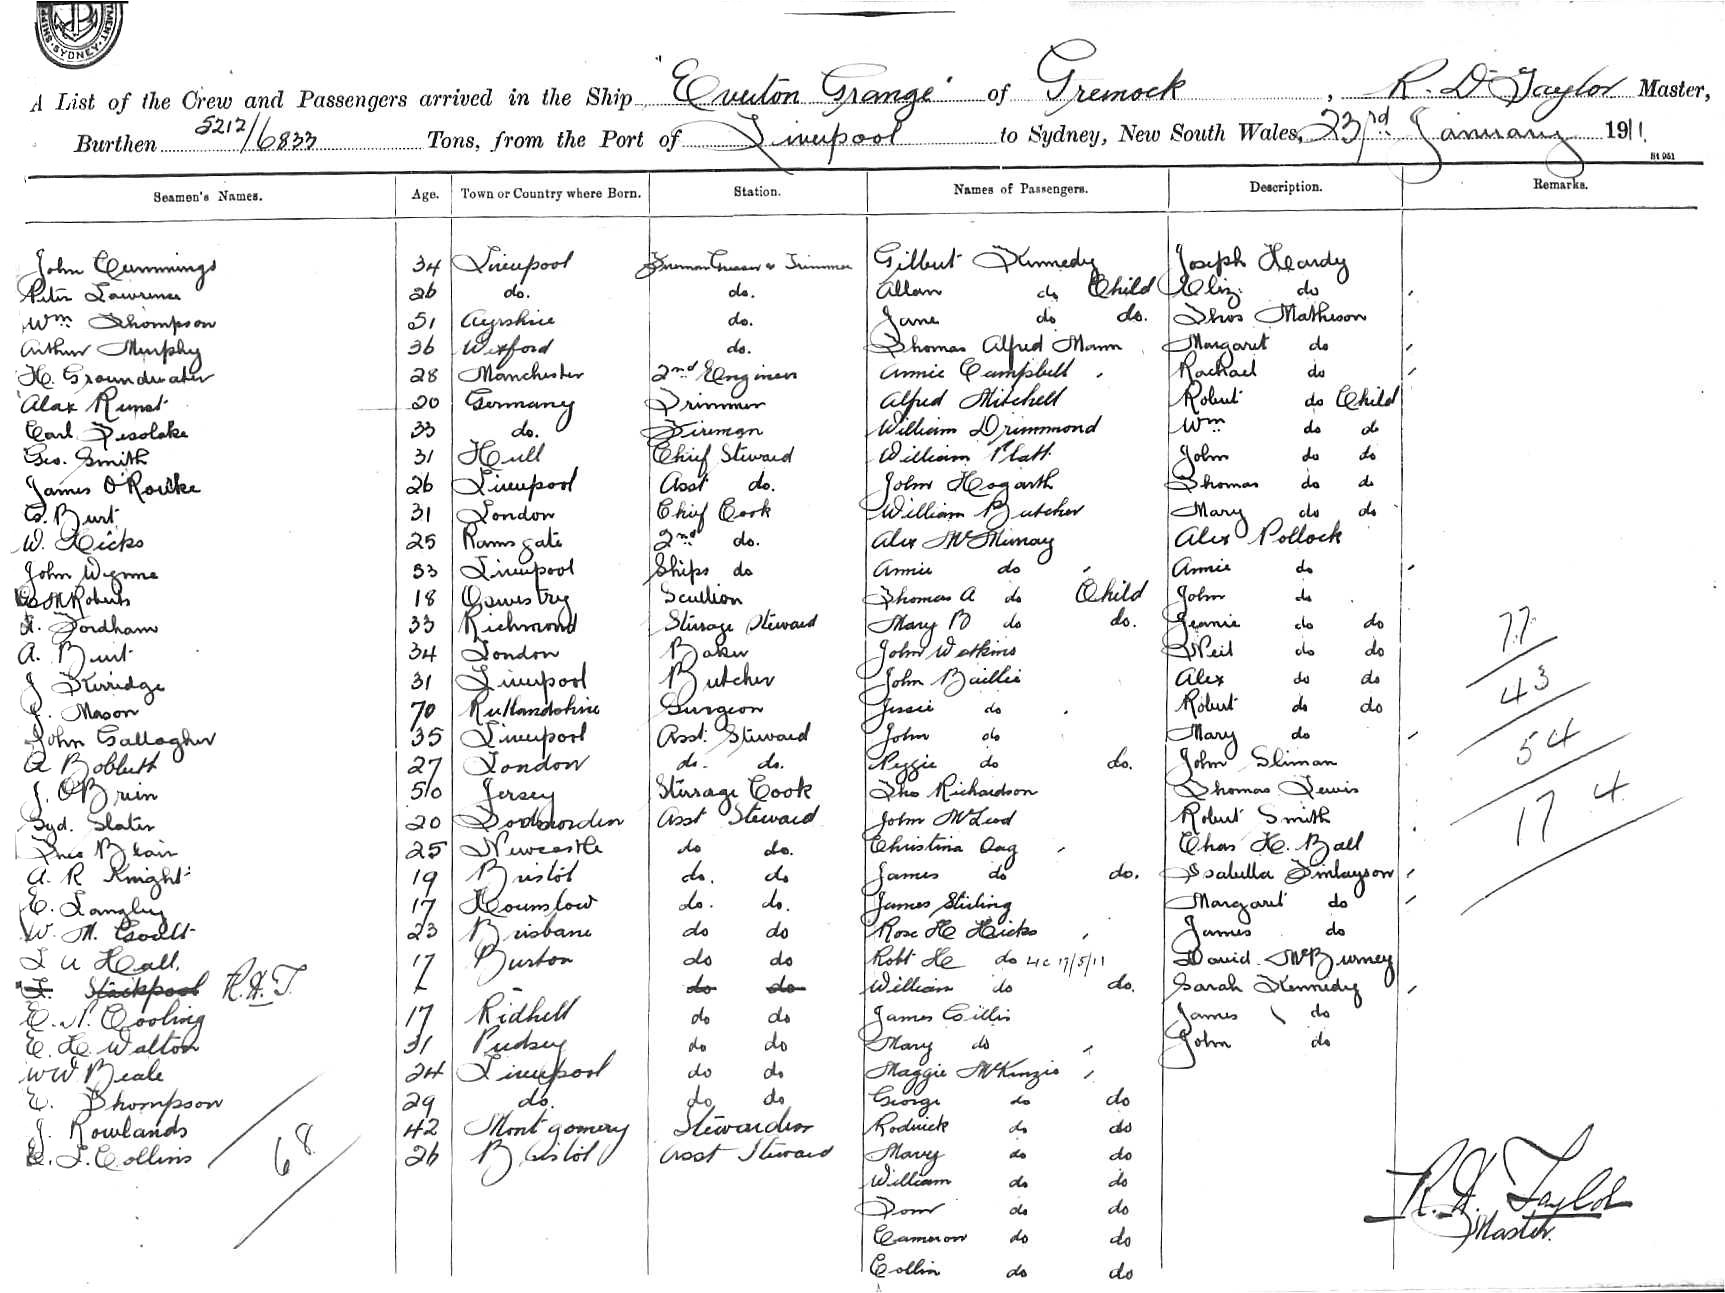 SHIP MENT. SYDNEY.
A List of the Crew and Passengers arrived in the Ship "Everton Grange" of Greenock, R. D Taylor Master,
Burthen 5212/6833 Tons, from the Port of Liverpool to Sydney, New South Wales, 23rd January 1911.
St 951
Seamen's Names. Age. Town or Country where Born. Station. Names of Passengers. Description. Remarks.
John Cummings 34 Liverpool Fireman Greaser & Trimmer Gilbert Kennedy Joseph Hardy
Peter Lawrence 26 do. do. Allan do Child Eliz. do
Wm Thompson 51 Ayrshire do. Jane do do. Thos Matheson
Arthur Murphy 36 Wexford do. Thomas Alfred Mann Margaret do
H. Groundwater 28 Manchester 2nd Engineer Annie Campbell Rachael do
Alax 20 Germany Trimmer Alfred Mitchell Robert do Child
Carl 33 do. Fireman William Drimmond Wm do do
Geo. Smith 31 Hull Chief Steward William Platt John do do
James O'Rourke 26 Liverpool Asst do. John Hogarth Thomas do do
G. Burt 31 London Chief Cook William Butcher Mary do do
W. Hicks 25 Ramsgate 2nd do. Alex McMurray Alex Pollock
John Wynne 53 Liverpool Ships do Annie do Annie do
Roberts 18 Oswestry Scullion Thomas A do Child John do
Fordham 33 Richmond Stirrage Steward Mary B do do. Jeanie do do
A. Burt 34 London Baker John Watkins Neil do do
J Kerridge 31 Liverpool Butcher John Baillie Alex do do
J. Mason 70 Rutlandshire Surgeon Jessie do Robert do do
John Gallagher 35 Liverpool Asst. Steward John do Mary do
A Bobbett 27 London do. do. Peggie do do. John Sliman
J. OBrien 50 Jersey Stirrage Cook Tho Richardson Thomas Lewis
Syd. Slater 20 Todmorden Asst Steward John McLeod Robert Smith
Thos Blair 25 Newcastle do do. Christina Oag Chas H. Ball
A. R Knight 19 Bristol do. do James do do. Isabella Finlayson
E. Langley 17 Hounslow do. do. James Stirling Margaret do
W. M. 23 Brisbane do do Rose H Hicks James do
L A Hall. 17 Burton do do Robt H do 17/5/11 David McBurney
Stackpool R.H.T. do do William do do. Sarah Kennedy
E. N. Cooling 17 do do James Gillis James do
E. H. Walton 31 Pudsey do do Mary do John do
WW Beale 24 Liverpool do do Maggie McKinzie
E. Thompson 29 do. do do George do do
J. Rowlands 42 Montgomery Stewardess Rodrick do do
E. L. Collins 26 Bristol Asst Steward Mary do do
William do do
Tom do do
Cameron do do
Collin do do
68
77
43
54
174
R. H. Taylor
Master.